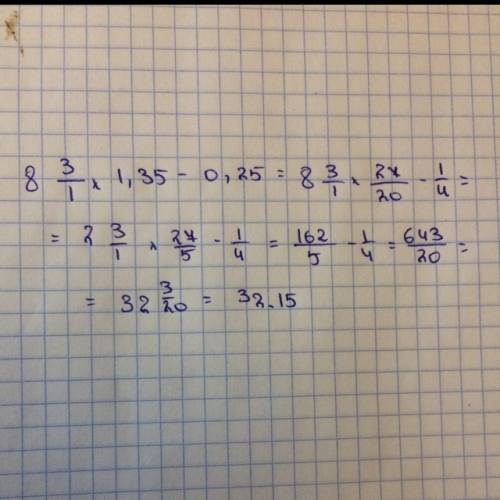 8 3/1 × 1,35 - 0,25 = 8 3/1 × 27/20 - 1/4 =
= 2 3/1 × 27/5 - 1/4 = 162/5 - 1/4 = 643/20 =
= 32 3/20 = 32.15